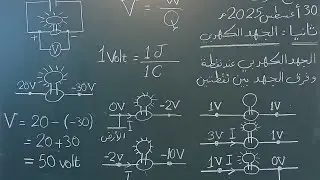 30 أغسطس 2025م
ثانيا : الجهد الكهربي
الجهد الكهربي عند نقطة
وفرق الجهد بين نقطتين
V = W
Q
1 Volt = 1J
1C
20V -30V
V = 20 - (-30)
= 20 + 30
= 50 volt
0V I -2V
الأرض
-2V I -10V
1V 1V
3V I 1V
1V I 0V